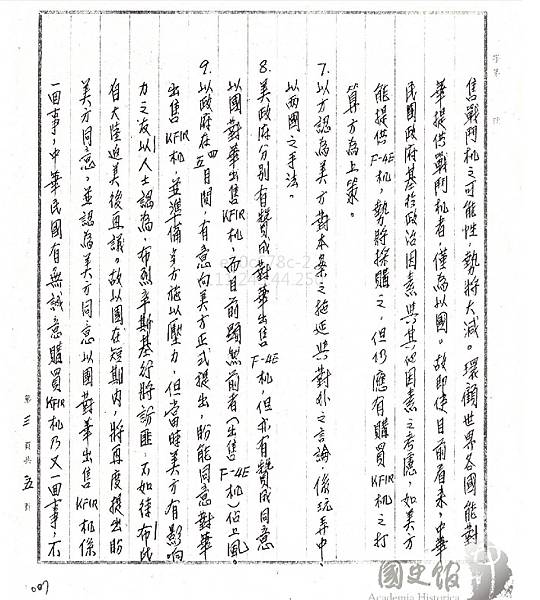 售戰鬥机之可能性,勢將大減。環顧世界各國能對
華提供戰鬥机者,僅為以國。故即使目前看來,中華
民國政府基於政治因素與其他因素之考慮,如美方
能提供F-4E机,勢將採購之,但仍應有購買KFIR机之打
算方為上策。
7.以方認為美方對本案之拖延與對外之言論,係玩弄中、
以兩國之手法。
8.美政府分別有贊成對華出售F-4E机,但亦有贊成同意
以國對華出售KFIR机,而目前顯然前者(出售F-4E机)佔上風。
9.以政府在四五月間,有意向美方正式提出,盼能同意對華
出售KFIR机,並準備多方施以壓力,但當時美方有影響
力之友以人士認為,布烈辛斯基行將訪匪,不如待布氏
自大陸返美後再議。故以國在短期內,將再度提出盼
美方同意,並認為美方同意以國對華出售KFIR机係
一回事,中華民國有無誠意購買KFIR机乃又一回事,不
第三頁共五頁
007
國史館
Academia Historica